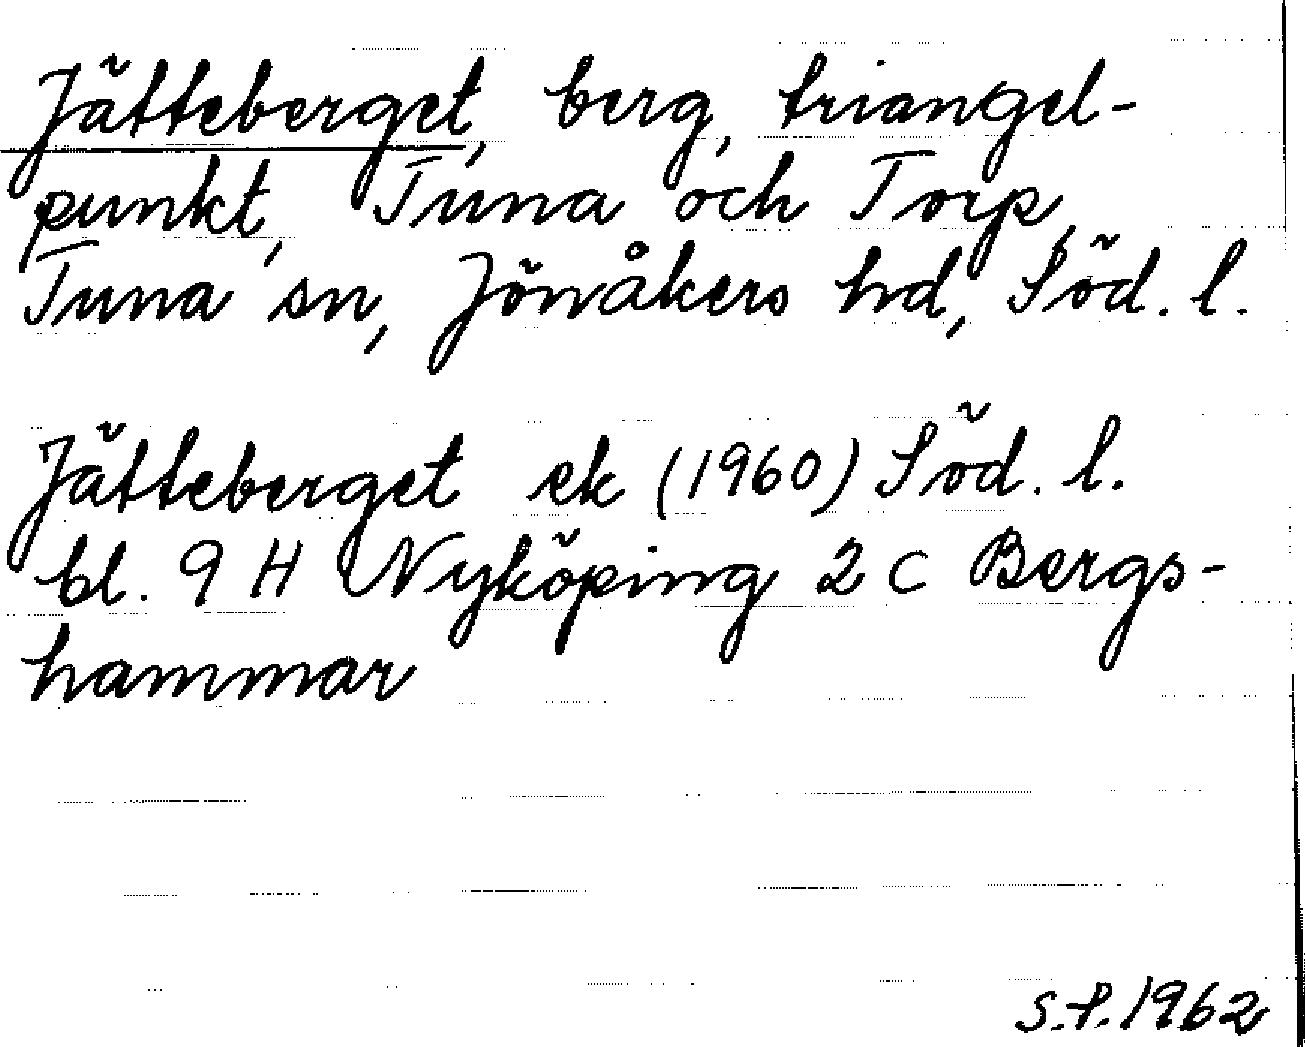 Jätteberget, berg, triangel-
punkt, Tuna och Torp,
Tuna sn, Jönåkers hd, Söd. l.
Jätteberget ek (1960) Söd. l.
bl. 9 H Nyköping 2 C Bergs-
hammar
S.P. 1962